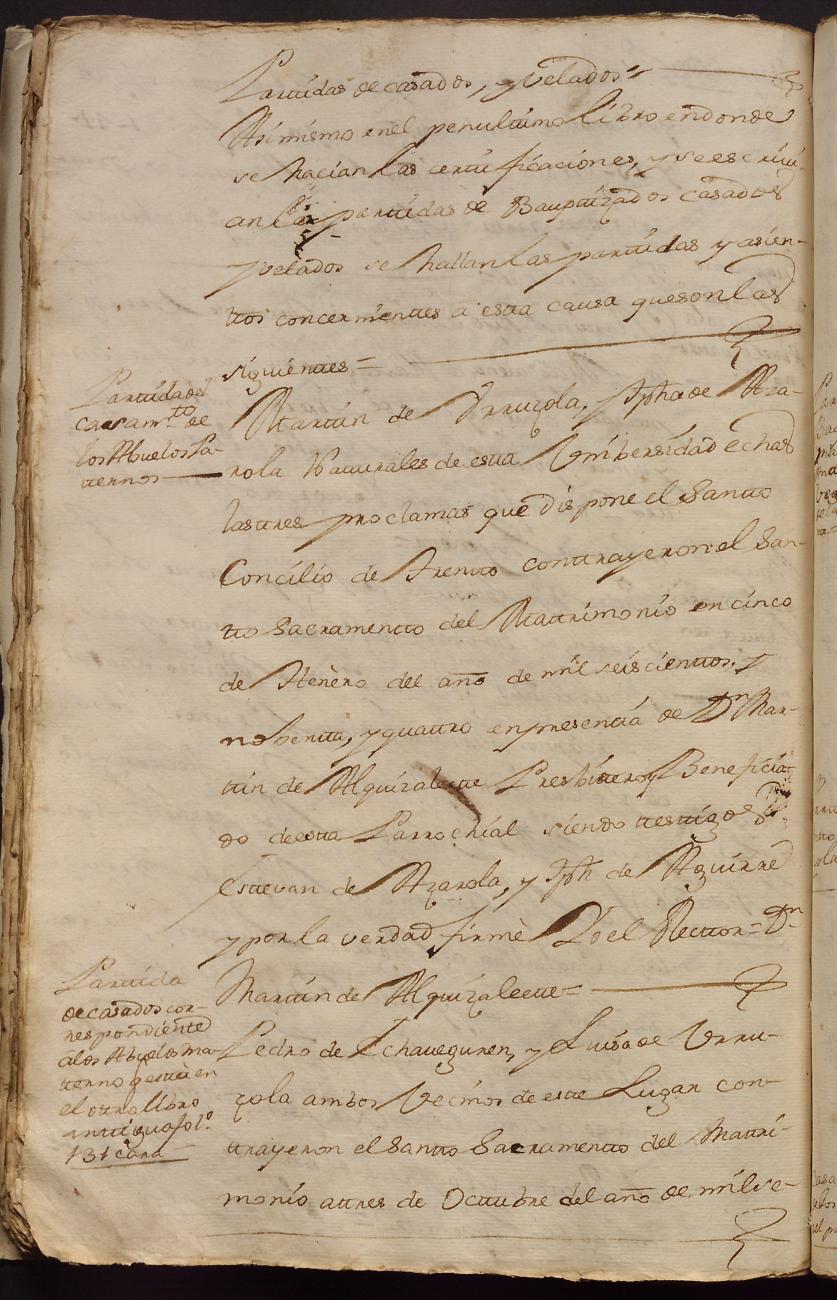 Partidas de casados, y velados =
Asimismo en el penulttimo libro en donde
se hacian las certtificaciones, y se escrivi-
an las parttidas de Bauptizados casados
y velados se hallan las parttidas y asien-
ttos concernienttes a estta causa que son las
siguienttes =
Parttida del
casam.tto de
los Abuelos Pa-
tternos
Marttin de Urruzola, y Jpha de Aza-
rola Natturales de estta Unibersidad echas
las ttres proclamas que dispone el Santto
Concilio de Trentto conttrayeron el San-
tto Sacramentto del Mattrimonio en cinco
de Henèro del año de mil seiscienttos, y
nobentta, y quattro en presencia de Dn Mar-
ttin de Alquizaleette Presbittero, y Beneficia-
do de estta Parrochial siendo testtigos
Esttevan de Azarola, y Jph de Aguirre
y por la verdad firmè Yo el Recttor = Dn
Marttin de Alquizaleette =
Parttida
de casados cor-
respondiente
a los Abuelos ma-
tternos q estta en
el ottro libro
anttiguo fol.o
131 cara
Pedro de Echaveguren, y Luisa de Urru-
zola ambos Vecinos de este Lugar con-
ttrayeron el Santto Sacramentto del Mattri-
monio a ttres de Octtubre del año de mil se-